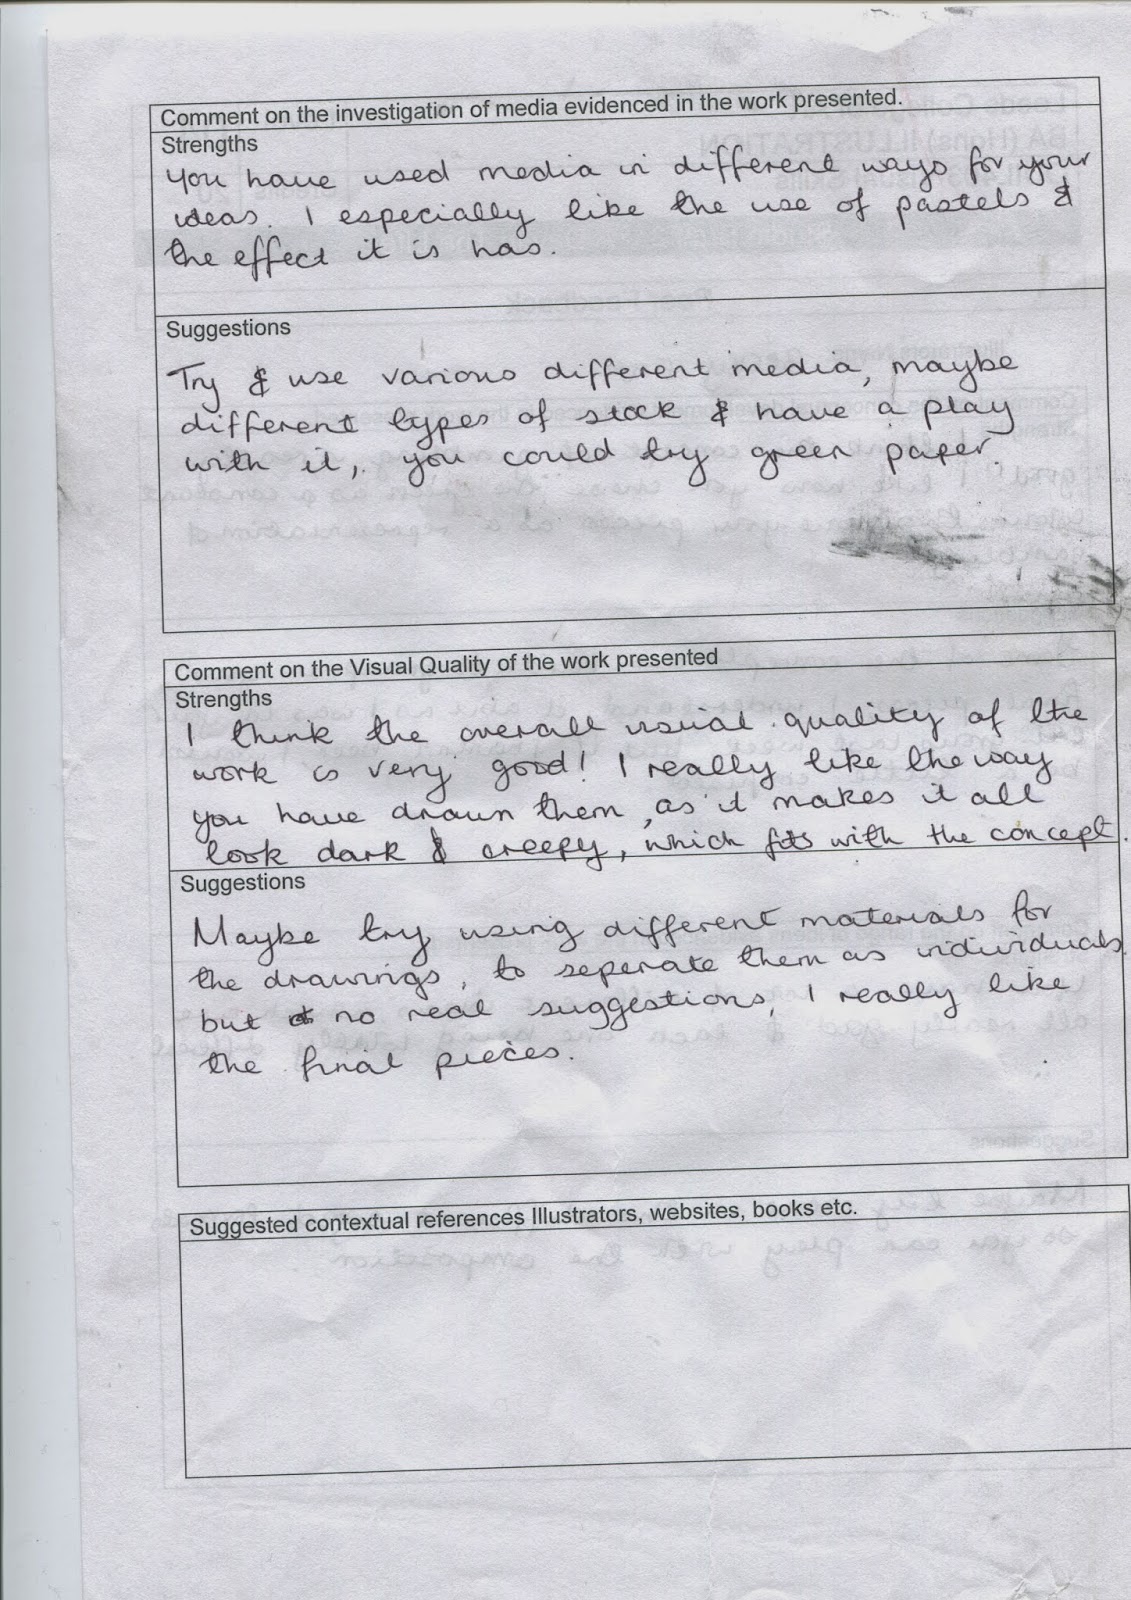 Comment on the investigation of media evidenced in the work presented.
Strengths
You have used media in different ways for your
ideas. I especially like the use of pastels &
the effect it is has.
Suggestions
Try & use various different media, maybe
different types of stock & have a play
with it, you could try green paper.
Comment on the Visual Quality of the work presented
Strengths
I think the overall visual quality of the
work is very good! I really like the way
you have drawn them, as it makes it all
look dark & creepy, which fits with the concept.
Suggestions
Maybe try using different materials for
the drawings, to seperate them as individuals
but no real suggestions, I really like
the final pieces.
Suggested contextual references Illustrators, websites, books etc.